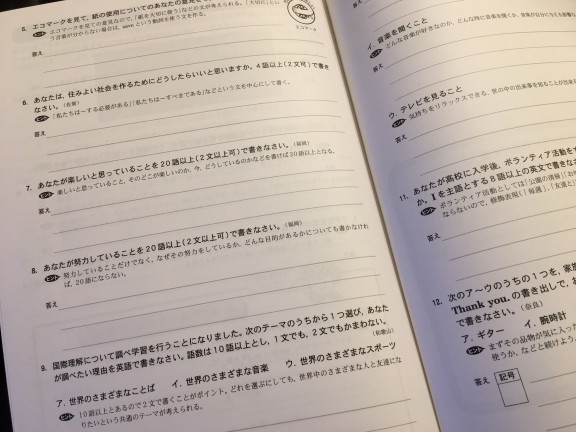 5. エコマークを見て、紙の使用についてのあなたの意見を
ヒント エコマークを見ての意見なので、「紙を大切に使う」などの文が考えられる。「大切に」とい
う言葉が分からない場合は、saveという動詞を使う文を作る。
エコマーク
答え
6. あなたは、住みよい社会を作るためにどうしたらいいと思いますか。4語以上(2文可)で書き
なさい。(佐賀)
ヒント 「私たちは〜する必要がある」「私たちは〜すべきである」などという文を中心にして書く。
答え
7. あなたが楽しいと思っていることを20語以上(2文以上可)で書きなさい。(福岡)
ヒント 楽しいと思っていること、そのどこが楽しいのか、今、どうしているのかなどを書けば20語以上となる。
答え
8. あなたが努力していることを20語以上(2文以上可)で書きなさい。(福岡)
ヒント 努力していることだけでなく、なぜその努力をしているか、どんな目的があるかについても書かなけれ
ば、20語にならない。
答え
9. 国際理解について調べ学習を行うことになりました。次のテーマのうちから1つ選び、あなた
が調べたい理由を英語で書きなさい。語数は10語以上とし、1文でも、2文でもかまわない。
(和歌山)
ア. 世界のさまざまなことば イ. 世界のさまざまな音楽 ウ. 世界のさまざまなスポーツ
ヒント 10語以上とあるので2文で書くことがポイント。どれを選ぶにしても、世界中のさまざまな人と友達にな
りたいという共通のテーマが考えられる。
イ. 音楽を聞くこと
ヒント どんな音楽が好きなのか、どんな時に音楽を聞くか、音楽が自分に
答え
ウ. テレビを見ること
ヒント 気持ちをリラックスできる、世の中の出来事を知ることが出来
答え
11. あなたが高校に入学後、ボランティア活動を
か。Iを主語とする8語以上の英文で書きな
ヒント ボランティア活動としては「公園の清掃」「お
ならないので、修飾表現(「毎週」、「友達と」
答え
12. 次のア〜ウのうちの1つを、家族
Thank you. の書き出しで、お
で書きなさい。(奈良)
ア. ギター イ. 腕時計
ヒント まずその品物が気に入っ
使うか、などと続けよう。
答え 記号